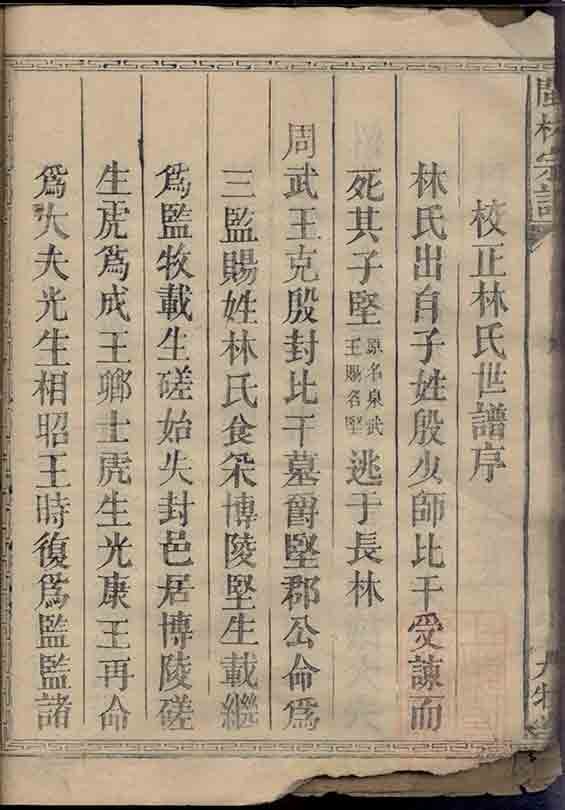 閩林宗譜
校正林氏世譜序
林氏出自子姓殷少師比干受諫而
死其子堅原名泉武王賜名堅逃于長林
周武王克殷封比干墓爵堅郡公命爲
三監賜姓林氏食采博陵堅生載繼
爲監牧載生磋始失封邑居博陵磋
生虎爲成王鄉士虎生光康王再命
爲大夫光生相昭王時復爲監監諸